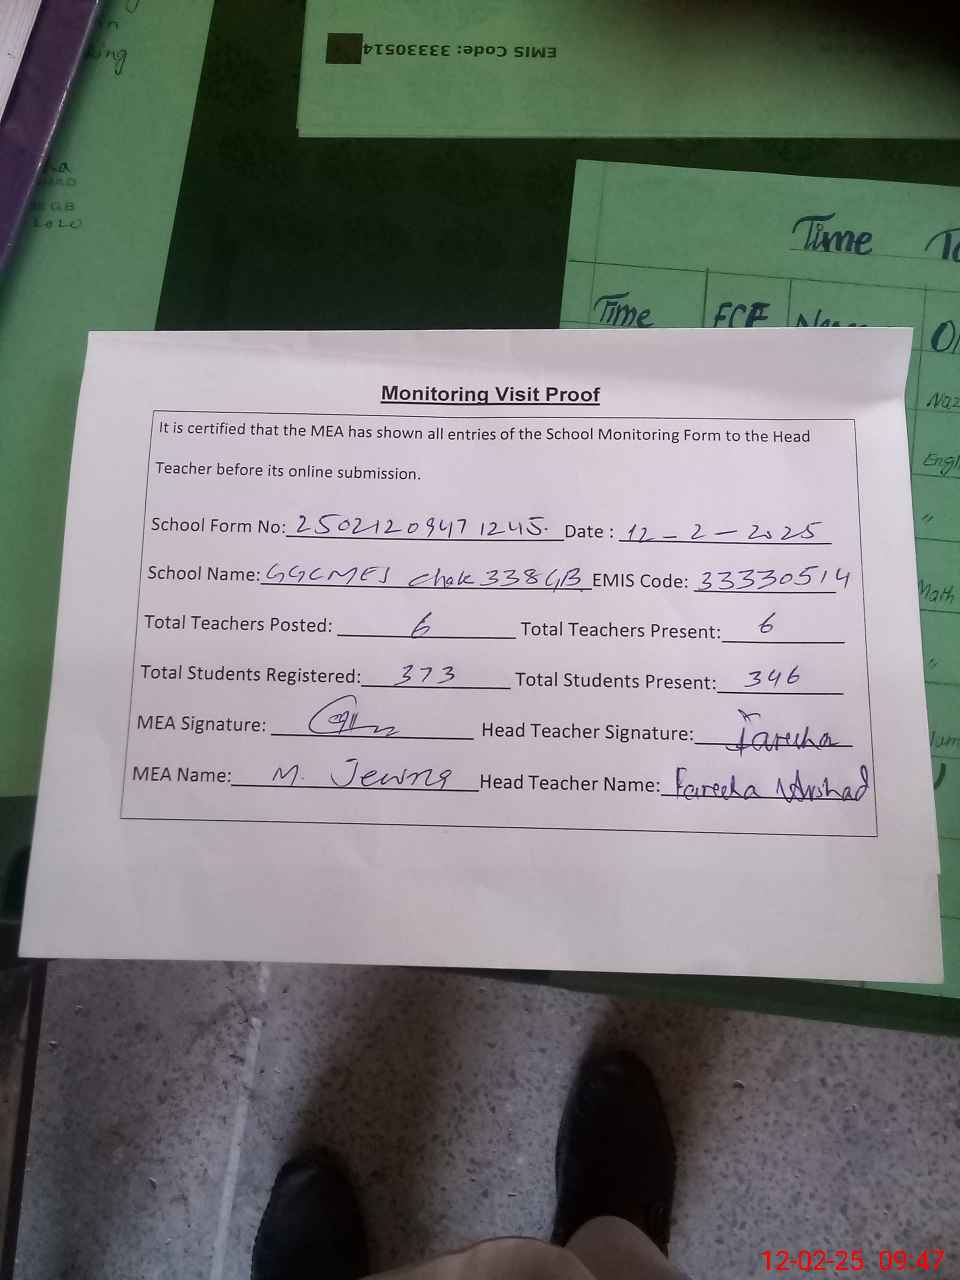 ing
EMIS Code: 33330514
Time
Time ECE
Monitoring Visit Proof
It is certified that the MEA has shown all entries of the School Monitoring Form to the Head
Teacher before its online submission.
School Form No: 25021209471245. Date : 12-2-2025
School Name: GGCMES Chak 338GB EMIS Code: 33330514
Total Teachers Posted: 6 Total Teachers Present: 6
Total Students Registered: 373 Total Students Present: 346
MEA Signature: Head Teacher Signature: Fareeha
MEA Name: M. Head Teacher Name: Fareeha Arshad
Naz
Engl
"
Math
"
12-02-25 09:47